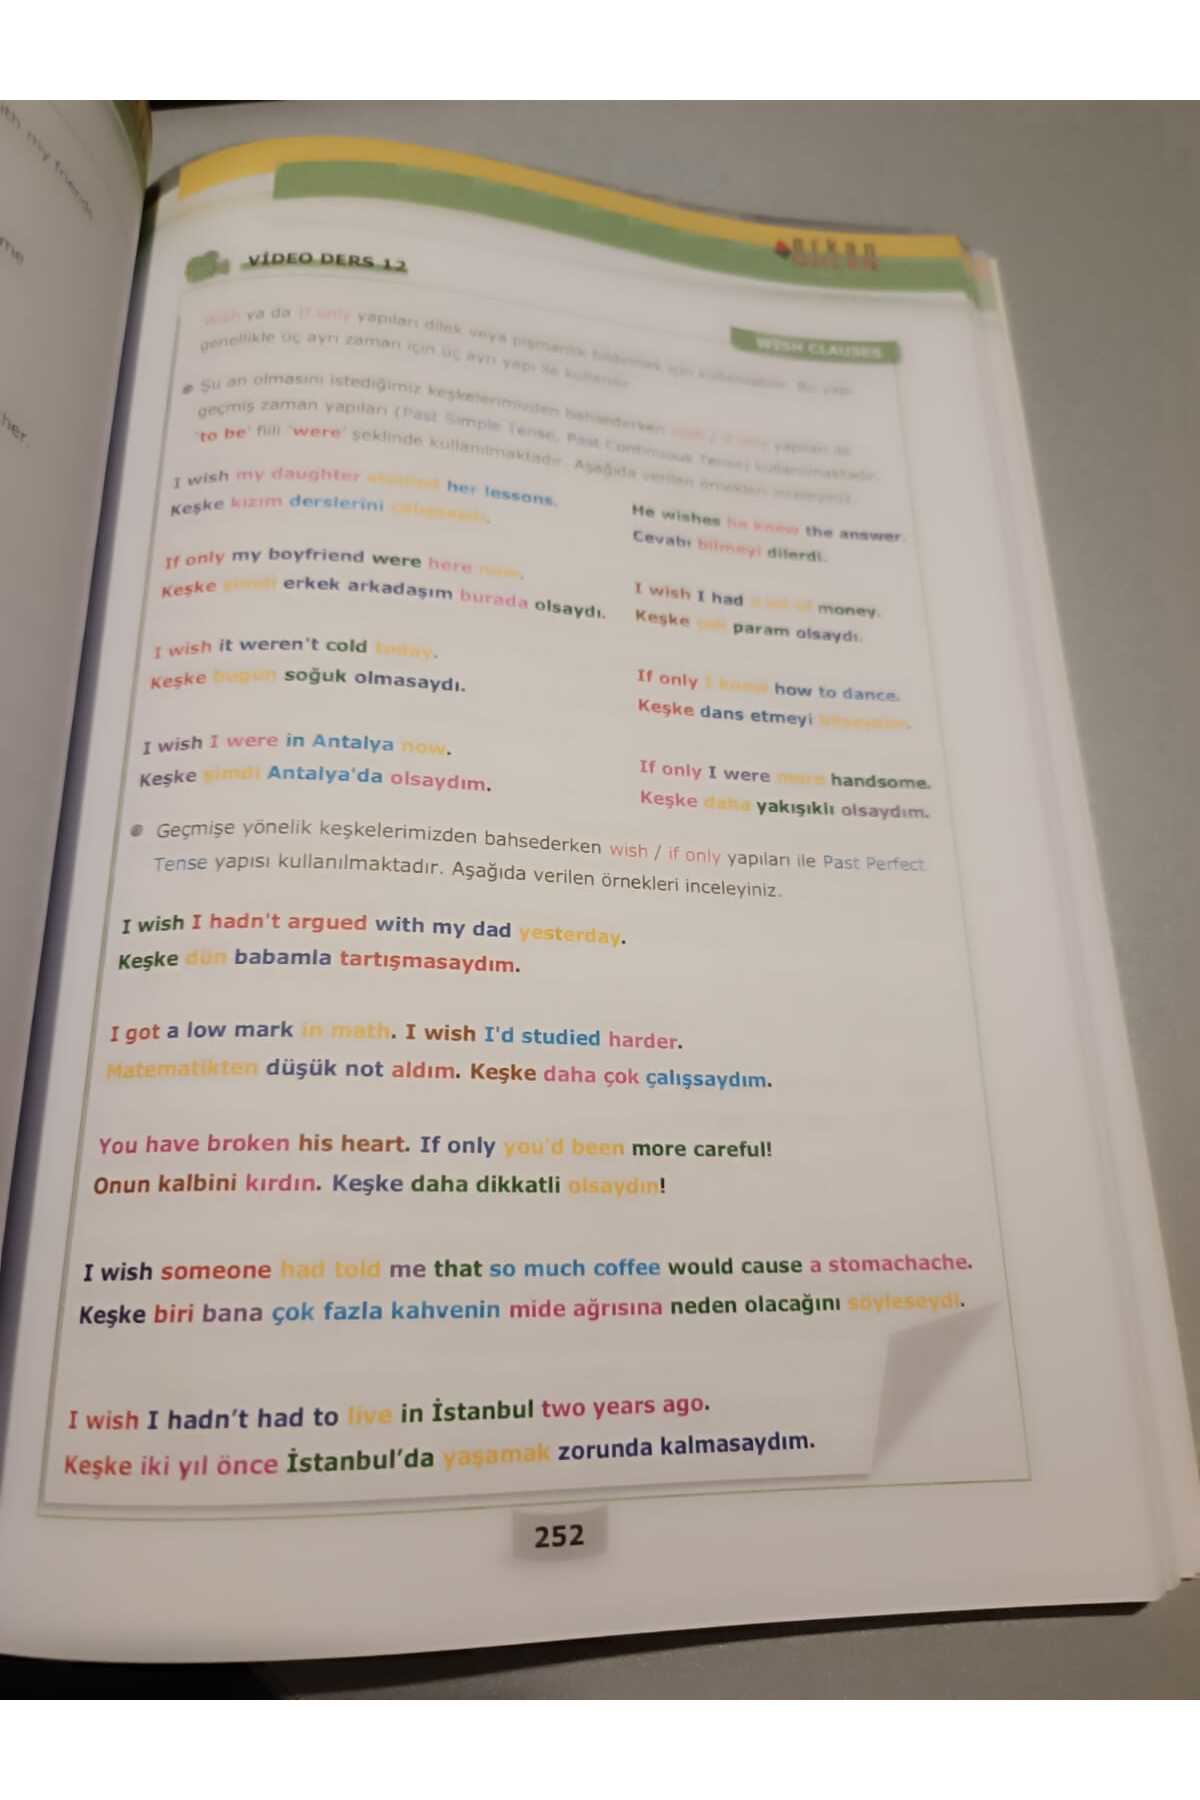 ith my friends
me
her.
VİDEO DERS 12
WISH CLAUSES
wish ya da if only yapıları dilek veya pişmanlık bildirmek için kullanılabilir. Bu yapı
genellikle üç ayrı zaman için üç ayrı yapı ile kullanılır.
Şu an olmasını istediğimiz keşkelerimizden bahsederken wish / if only yapıları ile
geçmiş zaman yapıları (Past Simple Tense, Past Continuous Tense) kullanılmaktadır.
'to be' fiili 'were' şeklinde kullanılmaktadır. Aşağıda verilen örnekleri inceleyiniz.
I wish my daughter studied her lessons.
Keşke kızım derslerini çalışsaydı.
If only my boyfriend were here now.
Keşke şimdi erkek arkadaşım burada olsaydı.
I wish it weren't cold today.
Keşke bugün soğuk olmasaydı.
I wish I were in Antalya now.
Keşke şimdi Antalya'da olsaydım.
He wishes he knew the answer.
Cevabı bilmeyi dilerdi.
I wish I had a lot of money.
Keşke çok param olsaydı.
If only I knew how to dance.
Keşke dans etmeyi bilseydim.
If only I were more handsome.
Keşke daha yakışıklı olsaydım.
Geçmişe yönelik keşkelerimizden bahsederken wish / if only yapıları ile Past Perfect
Tense yapısı kullanılmaktadır. Aşağıda verilen örnekleri inceleyiniz.
I wish I hadn't argued with my dad yesterday.
Keşke dün babamla tartışmasaydım.
I got a low mark in math. I wish I'd studied harder.
Matematikten düşük not aldım. Keşke daha çok çalışsaydım.
You have broken his heart. If only you'd been more careful!
Onun kalbini kırdın. Keşke daha dikkatli olsaydın!
I wish someone had told me that so much coffee would cause a stomachache.
Keşke biri bana çok fazla kahvenin mide ağrısına neden olacağını söyleseydi.
I wish I hadn't had to live in İstanbul two years ago.
Keşke iki yıl önce İstanbul'da yaşamak zorunda kalmasaydım.
252